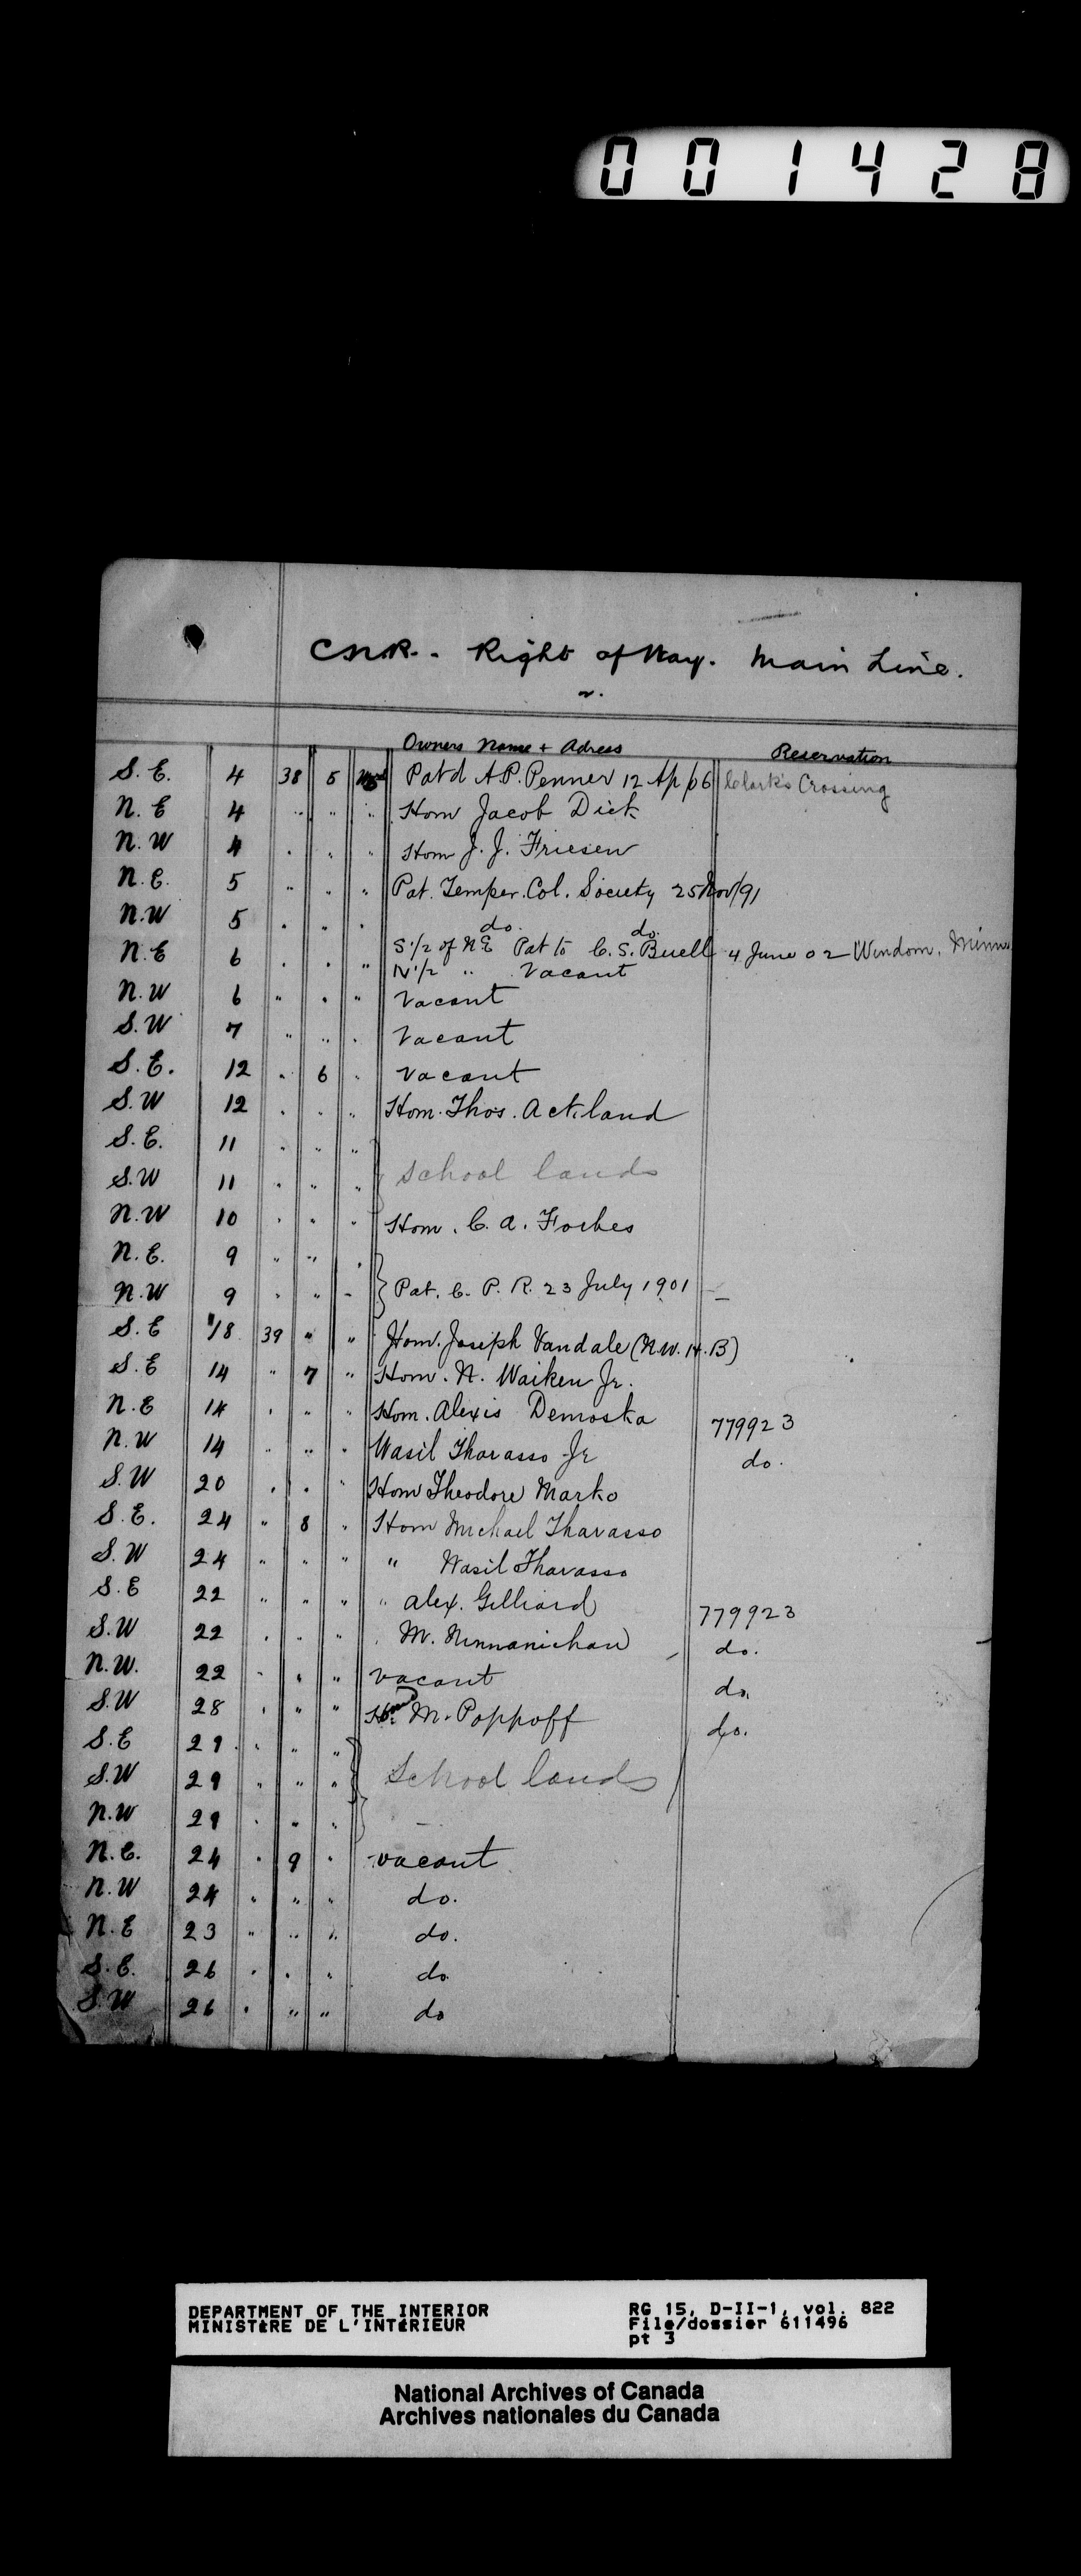 001428
CNR. - Right of Way. Main Line.
Owners Name + Adress Reservation
S.E. 4 38 5 W3rd Patd A.P. Penner 12 Ap/06 Clark's Crossing
N.E 4 " " " Hom Jacob Dick
N.W 4 " " " Hom J. J. Friesen
N.E. 5 " " " Pat. Temper. Col. Society 25 Nov/91
N.W 5 " " " do. do.
N.E 6 " " " S 1/2 of NE Pat to C. S. Buell 4 June 02 Windom. Minn
N 1/2 " Vacant
N.W 6 " " " Vacant
S.W 7 " " " Vacant
S.E. 12 " 6 " Vacant
S.W 12 " " " Hom. Thos. Ackland
S.E. 11 " " "
School lands
S.W 11 " " "
N.W 10 " " " Hom. C. A. Forbes
N.E. 9 " " "
N.W 9 " " " Pat. C. P. R. 23 July 1901 —
S.E 18 39 " " Hom. Joseph Vandale (N.W. H. B)
S.E 14 " 7 " Hom. N. Waiken Jr.
N.E 14 " " " Hom. Alexis Demoska 779923
N.W 14 " " " Wasil Tharasso Jr do.
S.W 20 " " " Hom Theodore Marko
S.E. 24 " 8 " Hom Michael Tharasso
S.W 24 " " " " Wasil Tharasso
S.E 22 " " " " Alex. Gilliard 779923
S.W 22 " " " " M. do.
N.W. 22 " " " vacant do.
S.W 28 " " " Hom M. Poppoff do.
S.E 29 " " "
S.W 29 " " " School lands
N.W 29 " " " —
N.E. 24 " 9 " vacant
N.W 24 " " " do.
N.E 23 " " " do.
S.E. 26 " " " do
S.W 26 " " " do
DEPARTMENT OF THE INTERIOR
MINISTÈRE DE L'INTÉRIEUR
RG 15, D-II-1, vol. 822
File/dossier 611496
pt 3
National Archives of Canada
Archives nationales du Canada